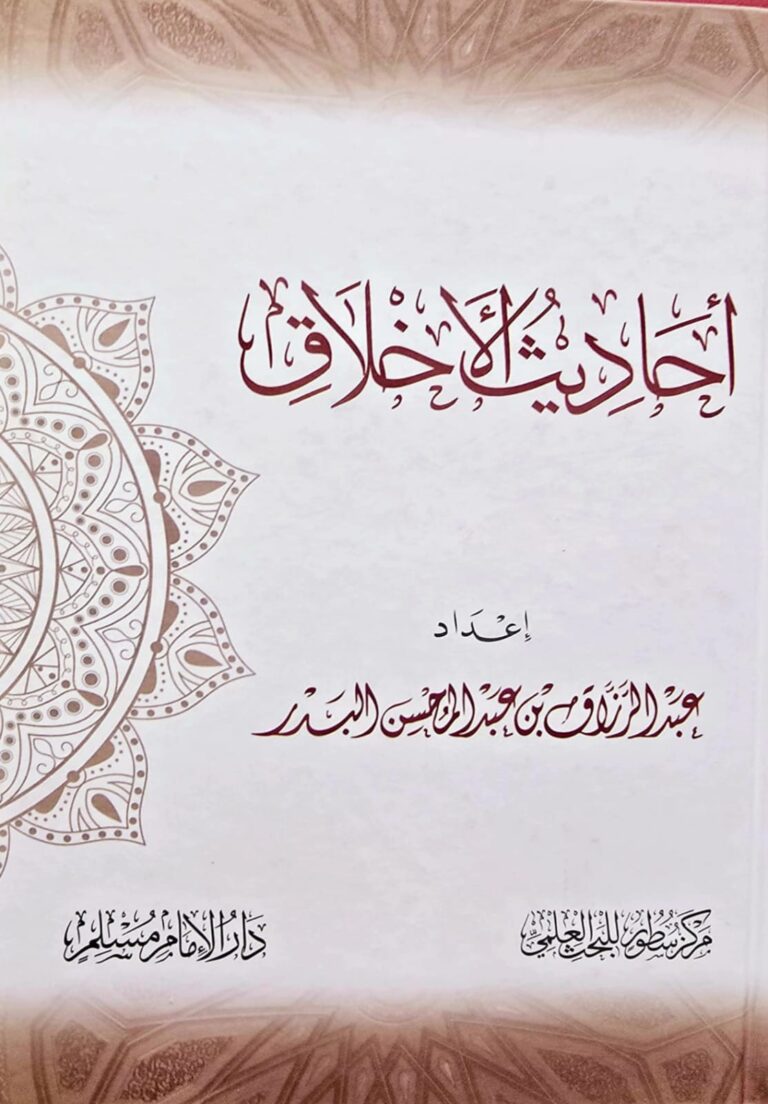 أَحَادِيثُ الأَخْلَاقِ
إِعْدَاد
عَبْد الرَّزَّاق بْن عَبْد المُحْسِن البَدْر
مَرْكَز سُطُور لِلْبَحْث العِلْمِيِّ
دَارُ الإِمَامِ مُسْلِمٍ